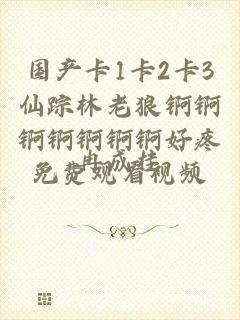 国产卡1卡2卡3
仙踪林老狼锕锕
锕锕锕锕锕好疼
免费观看视频
冉成桂